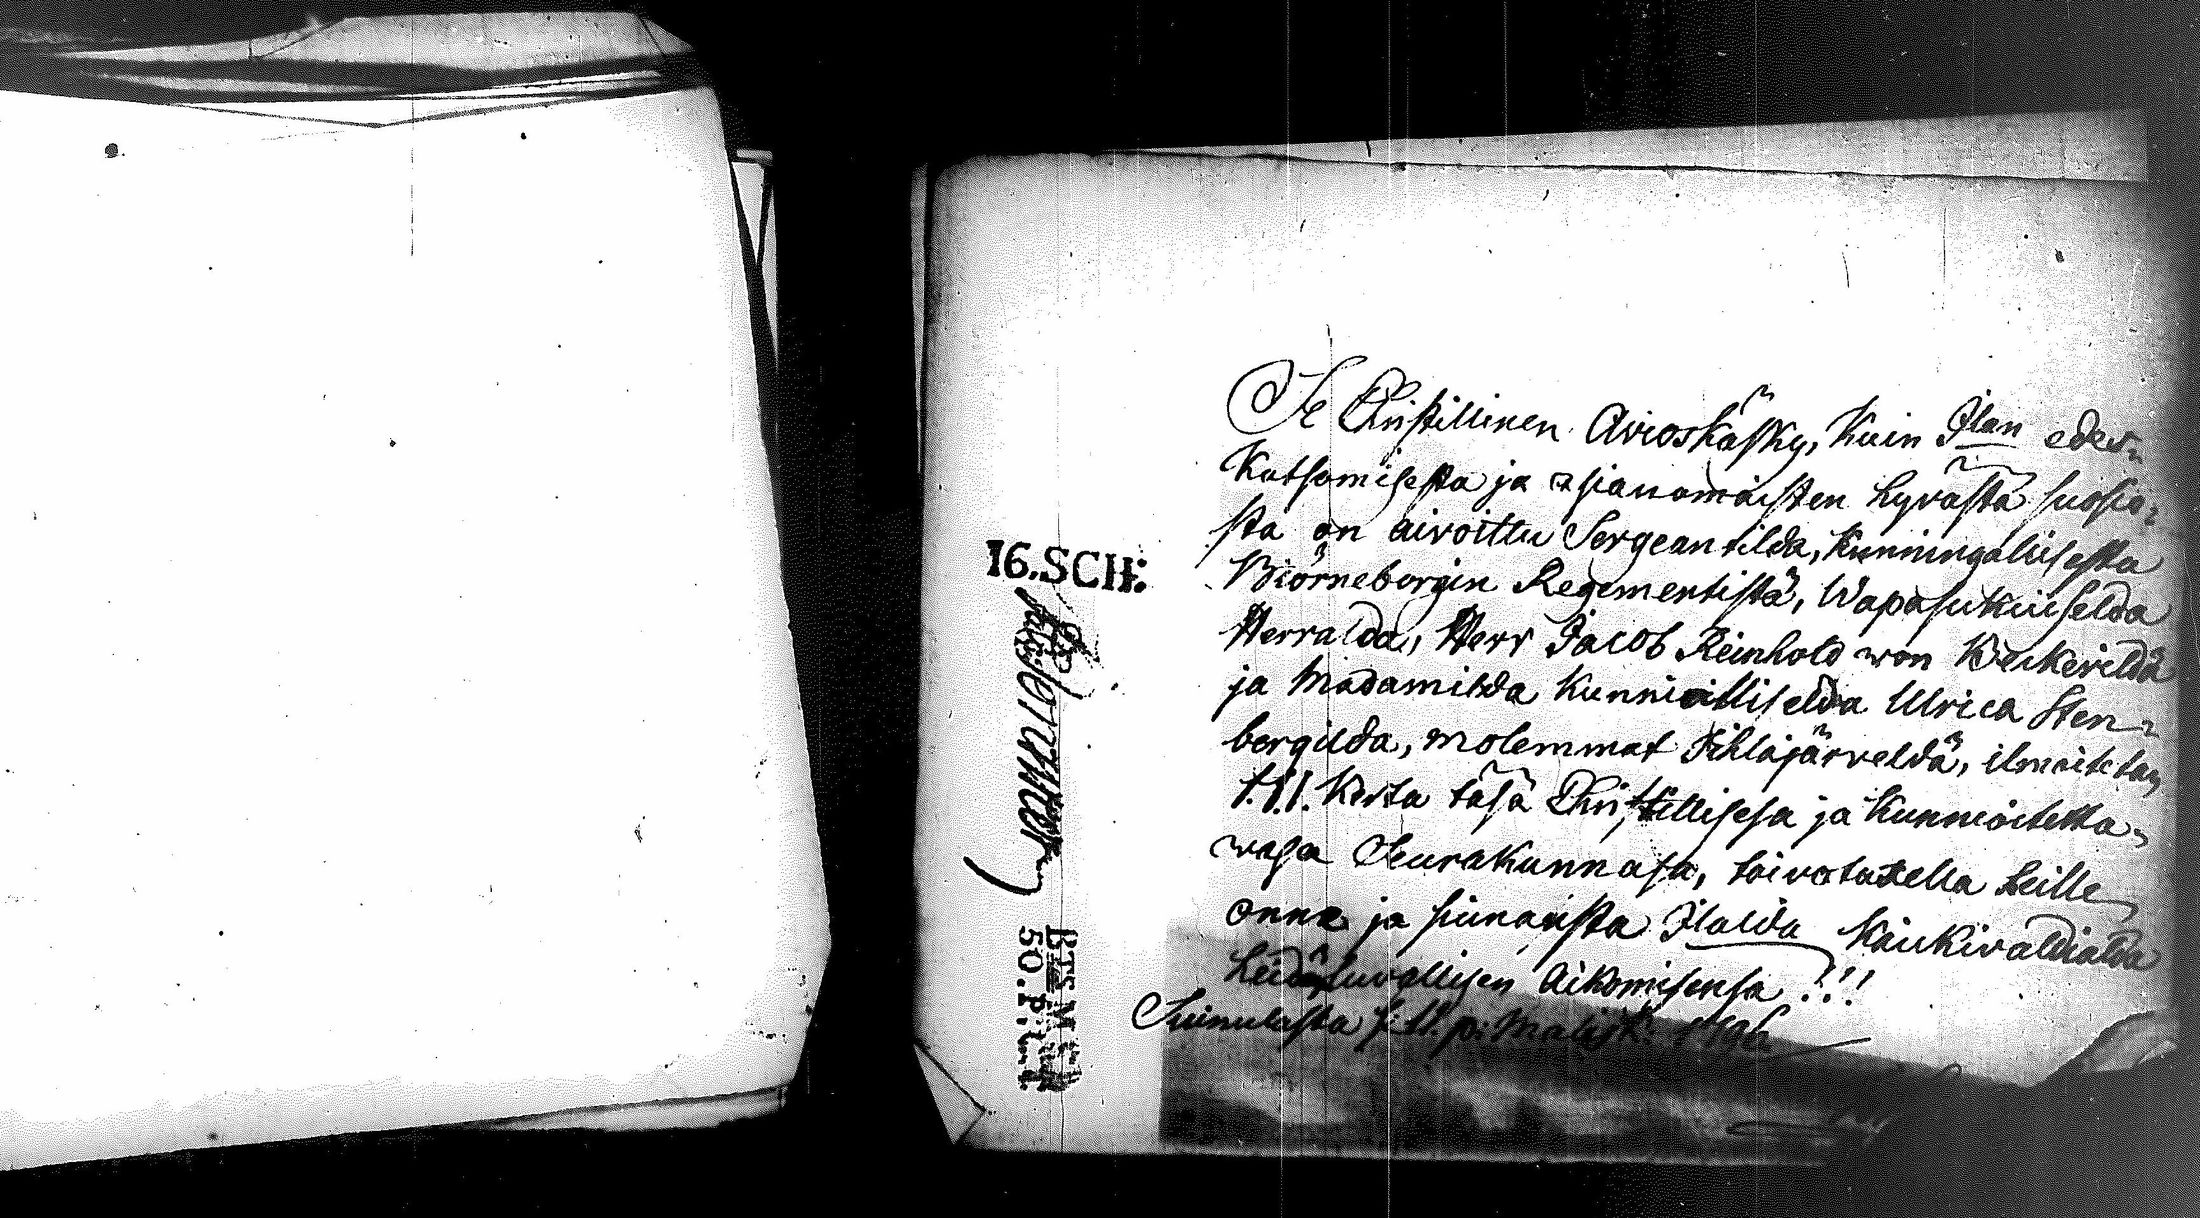 Se Christillinen Avioskäsky, kuin Ilan eden-
katsomisesta ja asianomaisten hyvästä suosio-
sta on aivoittu Sergeantilda, kuningalisesta
Biörneborgin Regementistä, Wapasukuiselda
Herralda, Herr Jacob Reinhold von Beckerilda
ja Madamilda kunnialliselda Ulrica Sten-
bergilda, molemmat Pihlajärveldä, ilmoitetan
1.II. kerta täsä Christillisesä ja kunnioitetta-
wasa Seurakunnasa, toivotutella heille
onna ja siunausta Ilalda kaickivaldialda
heidän luvallisen aikomisensa !!!
Suinulasta
16. SCH:
BTSM
50.P:C.T.